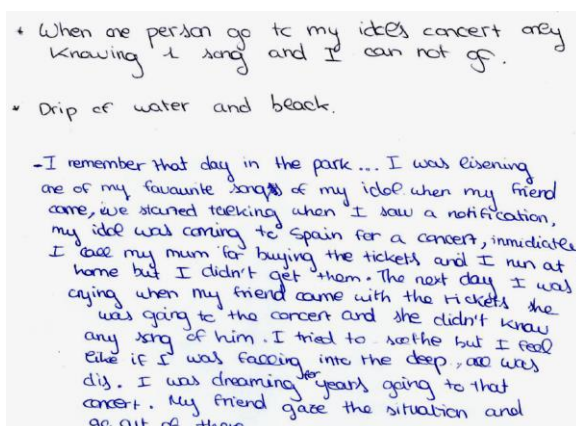 * When one person go to my idol's concert only
knowing 1 song and I can not go.
* Drip of water and black.
-I remember that day in the park... I was lisening
one of my favaurite songs of my idol when my friend
come, we started talking when I saw a notification,
my idol was coming to Spain for a concert, inmidiatle
I call my mum for buying the tickets and I run at
home but I didn't get them. The next day I was
crying when my friend came with the tickets she
was going to the concert and she didn't know
any song of him. I tried to soothe but I feel
like if I was falling into the deep, all was
dis. I was dreaming for years going to that
concert. My friend gaze the situation and
go out of there